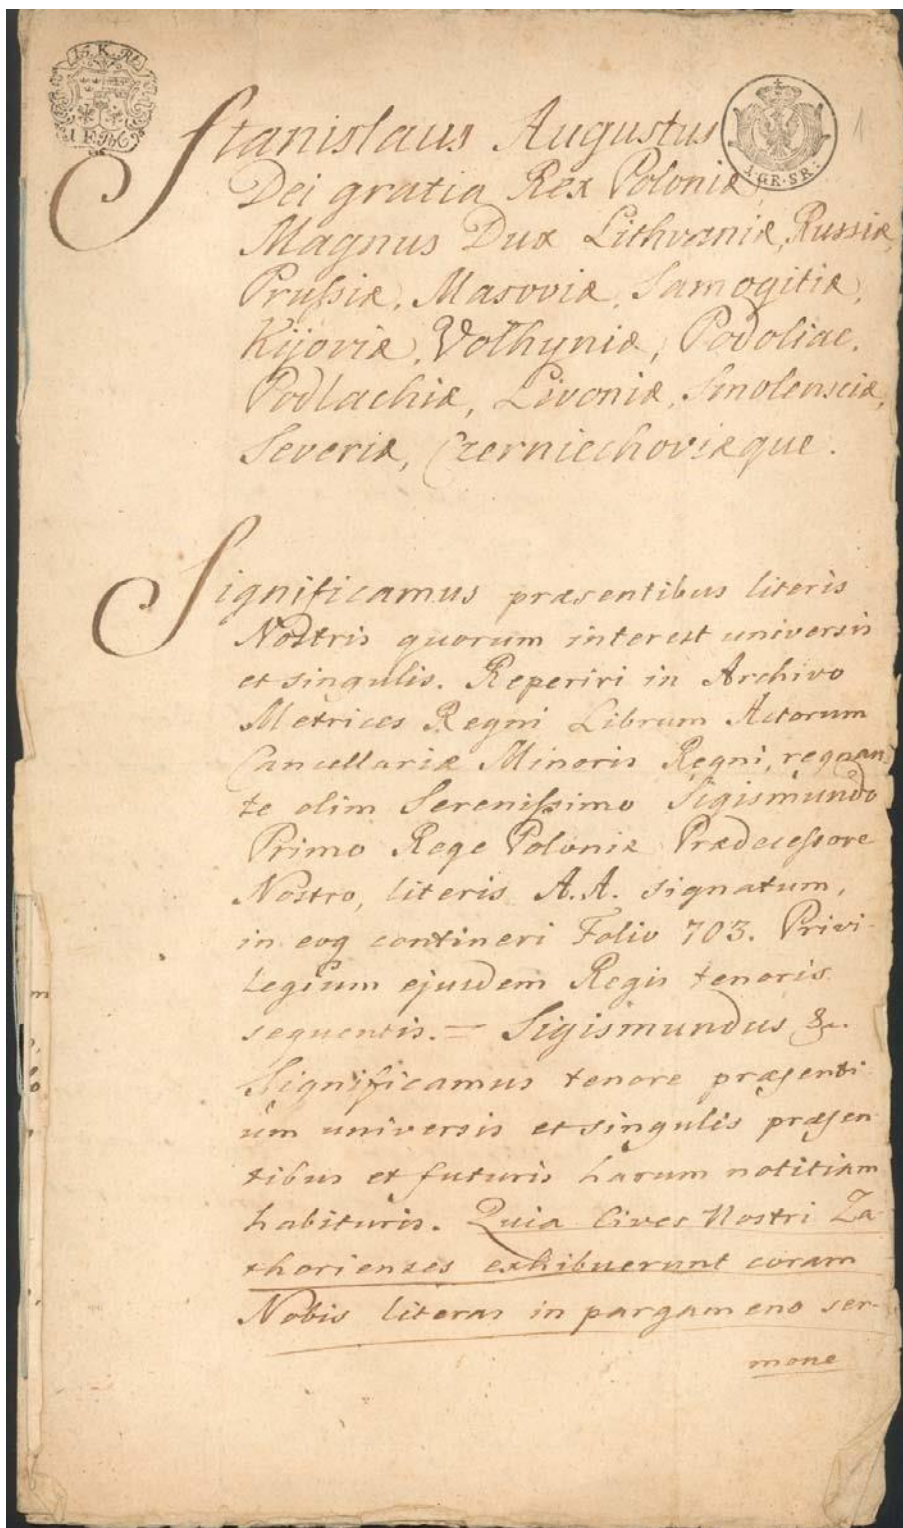 1
1. GR. SR.
Stanislaus Augustus
Dei gratia Rex Poloniæ,
Magnus Dux Lithvaniæ, Russiæ,
Prussiæ, Masoviæ, Samogitiæ,
Kijoviæ, Volhyniæ, Podoliae,
Podlachiæ, Livoniæ, Smolensciæ,
Severiæ, Czerniechoviæque.
Significamus præsentibus literis
Nostris quorum interest universis
et singulis. Reperiri in Archivo
Metrices Regni Librum Actorum
Cancellariæ Minoris Regni, regnan-
te olim Serenissimo Sigismundo
Primo Rege Poloniæ Prædecessore
Nostro, literis A.A. signatum,
in eoq contineri Folio 703. Privi-
legium ejusdem Regis tenoris
sequentis. = Sigismundus &c.
Significamus tenore præsenti
um universis et singulis præsen
tibus et futuris harum notitiam
habituris. Quia Cives Nostri Za-
thorienses exhibuerunt coram
Nobis literas in pargameno ser-
mone